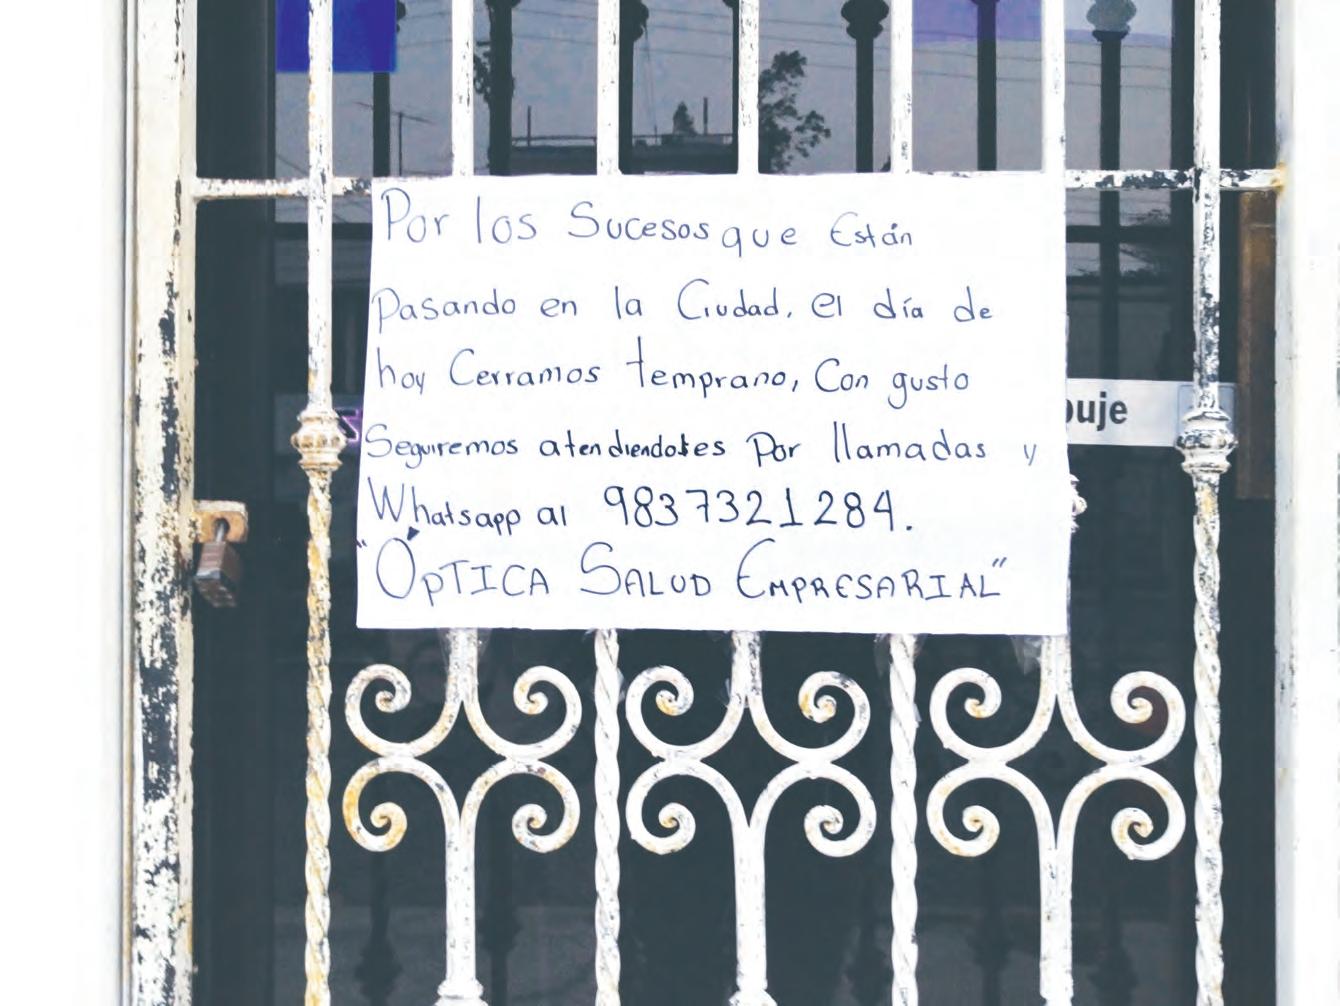 Por los Sucesos que Están
Pasando en la Ciudad, el día de
hoy Cerramos temprano, Con gusto
Seguiremos atendiendoles Por llamadas y
Whatsapp al 9837321284.
"ÓPTICA SALUD EMPRESARIAL"
puje